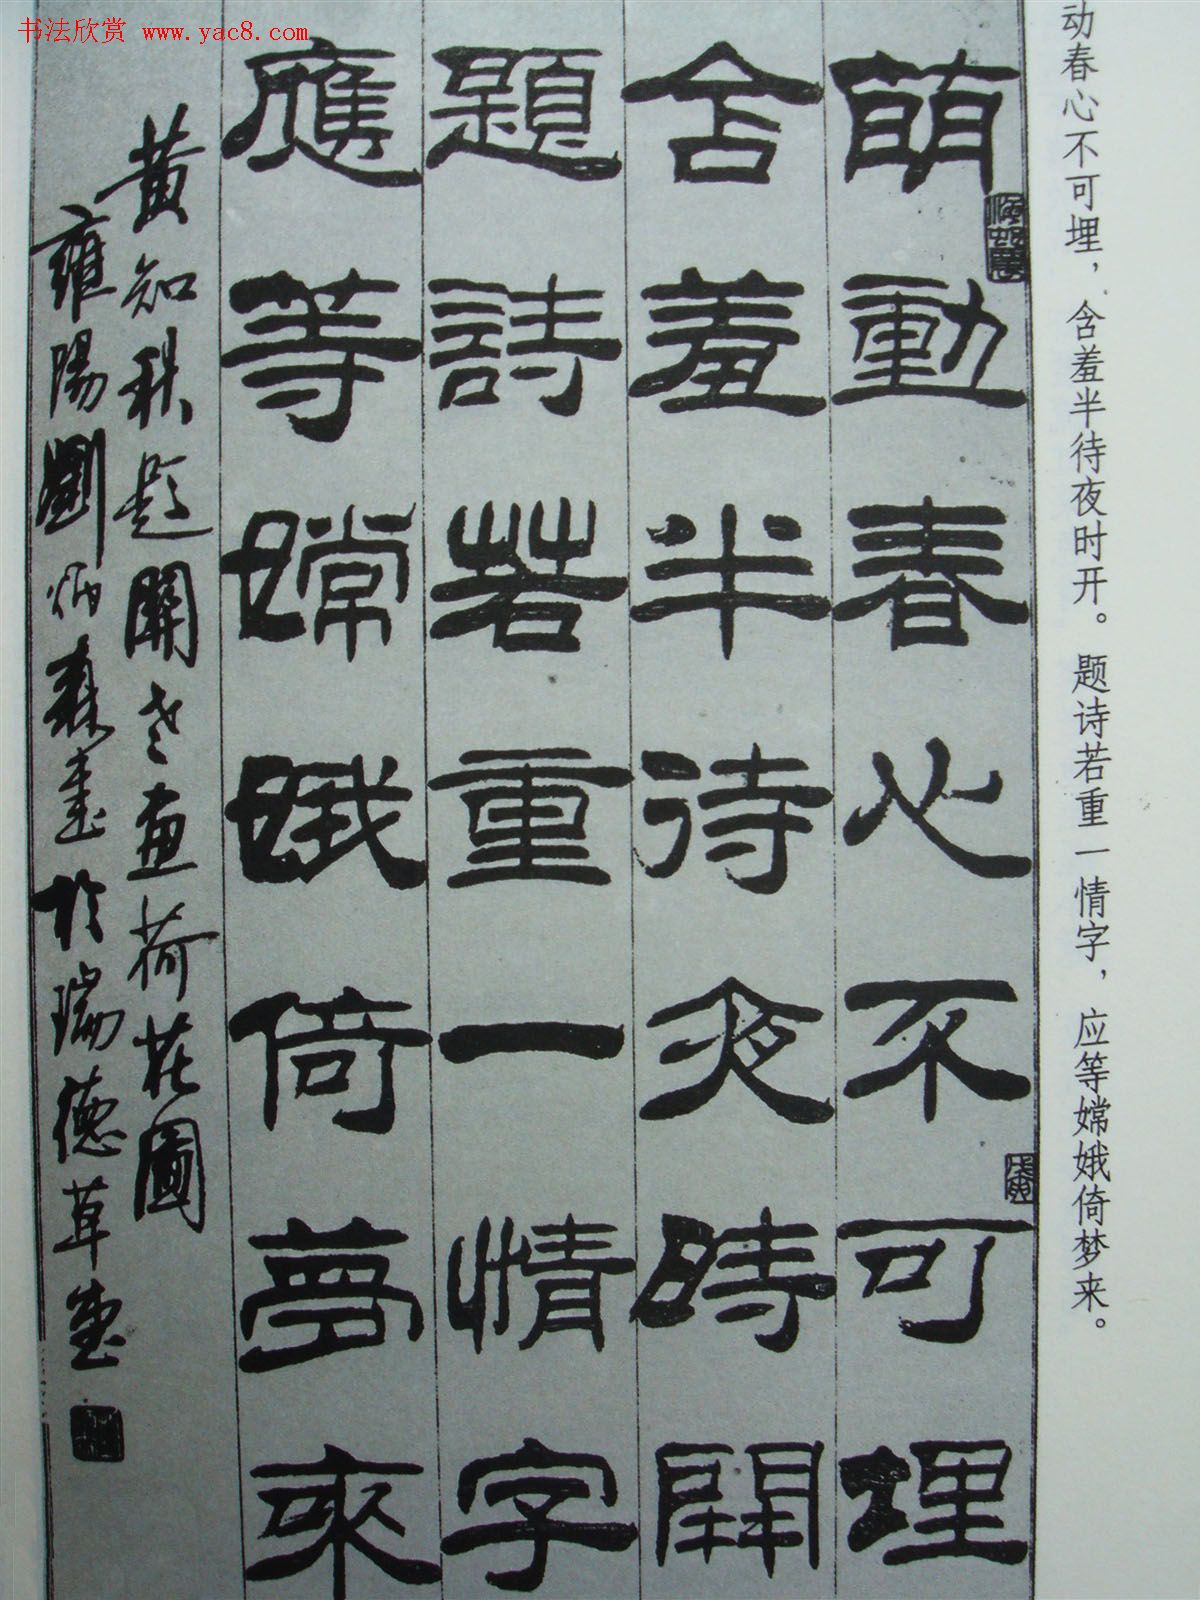 书法欣赏 www.yac8.com
动春心不可埋，含羞半待夜时开。题诗若重一情字，应等嫦娥倚梦来。
萌動春心不可埋
含羞半待夜時開
題詩若重一情字
應等嫦娥倚夢來
黄知秋題關老畫荷花圖
雍陽劉炳森書於瑞德草堂
戊寅